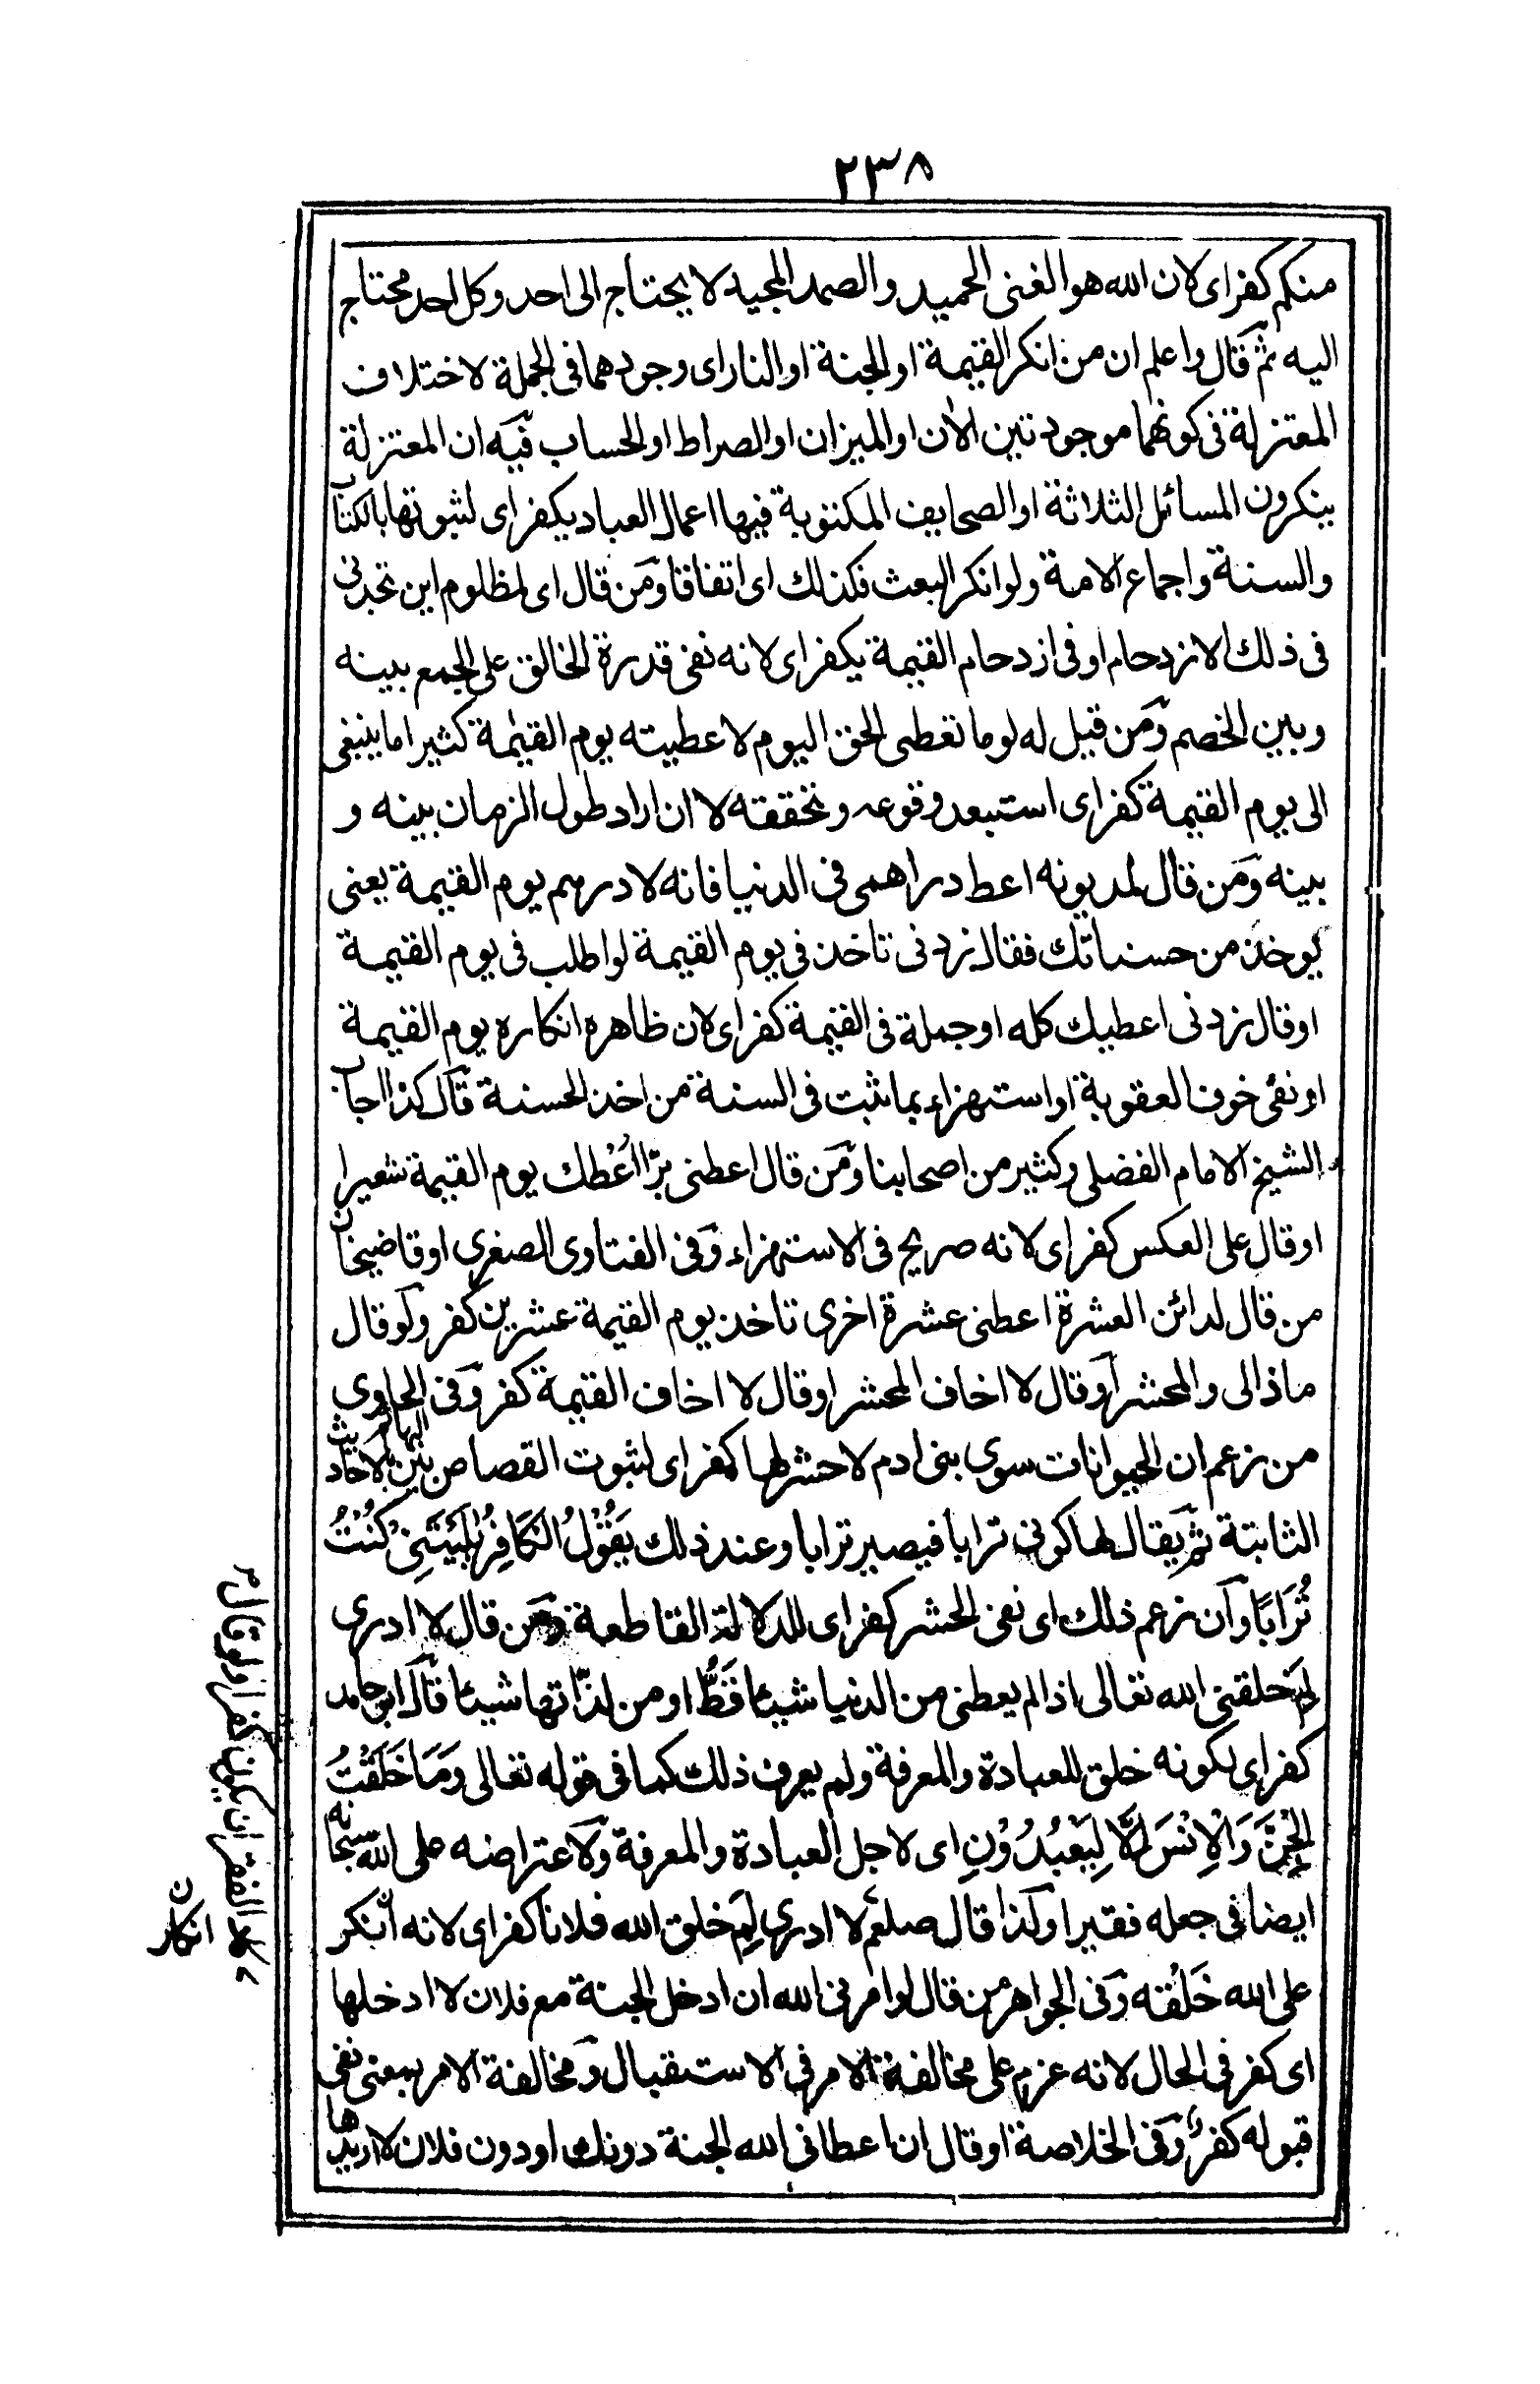 ٢٣٨
منكم كفر اى لان الله هو الغنى الحميد والصمد المجيد لا يحتاج الى احد وكل احد محتاج
اليه ثم قال واعلم ان من انكر القيمة او الجنة او النار اى وجودهما فى الجملة لاختلاف
المعتزلة فى كونهما موجودتين الان او الميزان او الصراط او الحساب فيه ان المعتزلة
ينكرون المسائل الثلاثة او الصحايف المكتوبة فيها اعمال العباد يكفر اى لثبوتها بالكتاب
والسنة واجماع الامة ولو انكر البعث فكذلك اى اتفاقا ومن قال اى لمظلوم اين تجدنى
فى ذلك الازدحام او فى ازدحام القيمة يكفر اى لانه نفى قدرة الخالق على الجمع بينه
وبين الخصم ومن قيل له لو ما تعطى الحق اليوم لاعطيته يوم القيمة كثيرا ما ينبغى
الى يوم القيمة كفر اى استبعد وقوعه وتحققه لا ان اراد طول الزمان بينه و
بينه ومن قال لمديونه اعط دراهمى فى الدنيا فانه لا درهم يوم القيمة يعنى
يوخذ من حسناتك فقال زدنى تاخذ فى يوم القيمة لو اطلب فى يوم القيمة
او قال زدنى اعطيك كله او جملة فى القيمة كفر اى لان ظاهره انكاره يوم القيمة
او نفى خوف العقوبة او استهزاء بما ثبت فى السنة من اخذ الحسنة قال كذا اجاب
الشيخ الامام الفضلى وكثير من اصحابنا ومن قال اعطنى برّا اُعْطك يوم القيمة شعيرا
او قال على العكس كفر اى لانه صريح فى الاستهزاء وفى الفتاوى الصغرى او قاضيخان
من قال لدائن العشرة اعطنى عشرة اخرى تاخذ يوم القيمة عشرين كفر ولو قال
ماذا لى والمحشر او قال لا اخاف المحشر او قال لا اخاف القيمة كفر وفى الحاوى
من زعم ان الحيوانات سوى بنى ادم لا حشر لها كفر اى لثبوت القصاص بين البهائم بالاحاديث
الثابتة ثم يقال لها كونى ترابا فيصير ترابا وعند ذلك يَقُوْلُ الْكَافِرُ يٰلَيْتَنِىْ كُنْتُ
تُرَابًا وان زعم ذلك اى نفى الحشر كفر اى للدلالة القاطعة ومن قال لا ادرى
لِمَ خلقنى الله تعالى اذا لم يعطنى من الدنيا شيئا قَطُّ او من لذّاتها شيئا قال ابو حامد
كفر اى لكونه خلق للعبادة والمعرفة ولم يعرف ذلك كما فى قوله تعالى وَمَا خَلَقْتُ
الْجِنَّ وَالْاِنْسَ اِلَّا لِيَعْبُدُوْنِ اى لاجل العبادة والمعرفة ولاعتراضه على الله سبحانه
ايضا فى جعله فقيرا وكذا قال صلعم لا ادرى لِمَ خلق الله فلانا كفر اى لانه انكر
على الله خَلْقه وفى الجواهر من قال لو امرنى الله ان ادخل الجنة مع فلان لا ادخلها
اى كفر فى الحال لانه عزم على مخالفة الامر فى الاستقبال ومخالفة الامر بمعنى نفى
قبوله كفر وفى الخلاصة او قال ان اعطانى الله الجنة دونك او دون فلان لا اريدها
كاد الفقر ان يكون كفرا ولو قال م